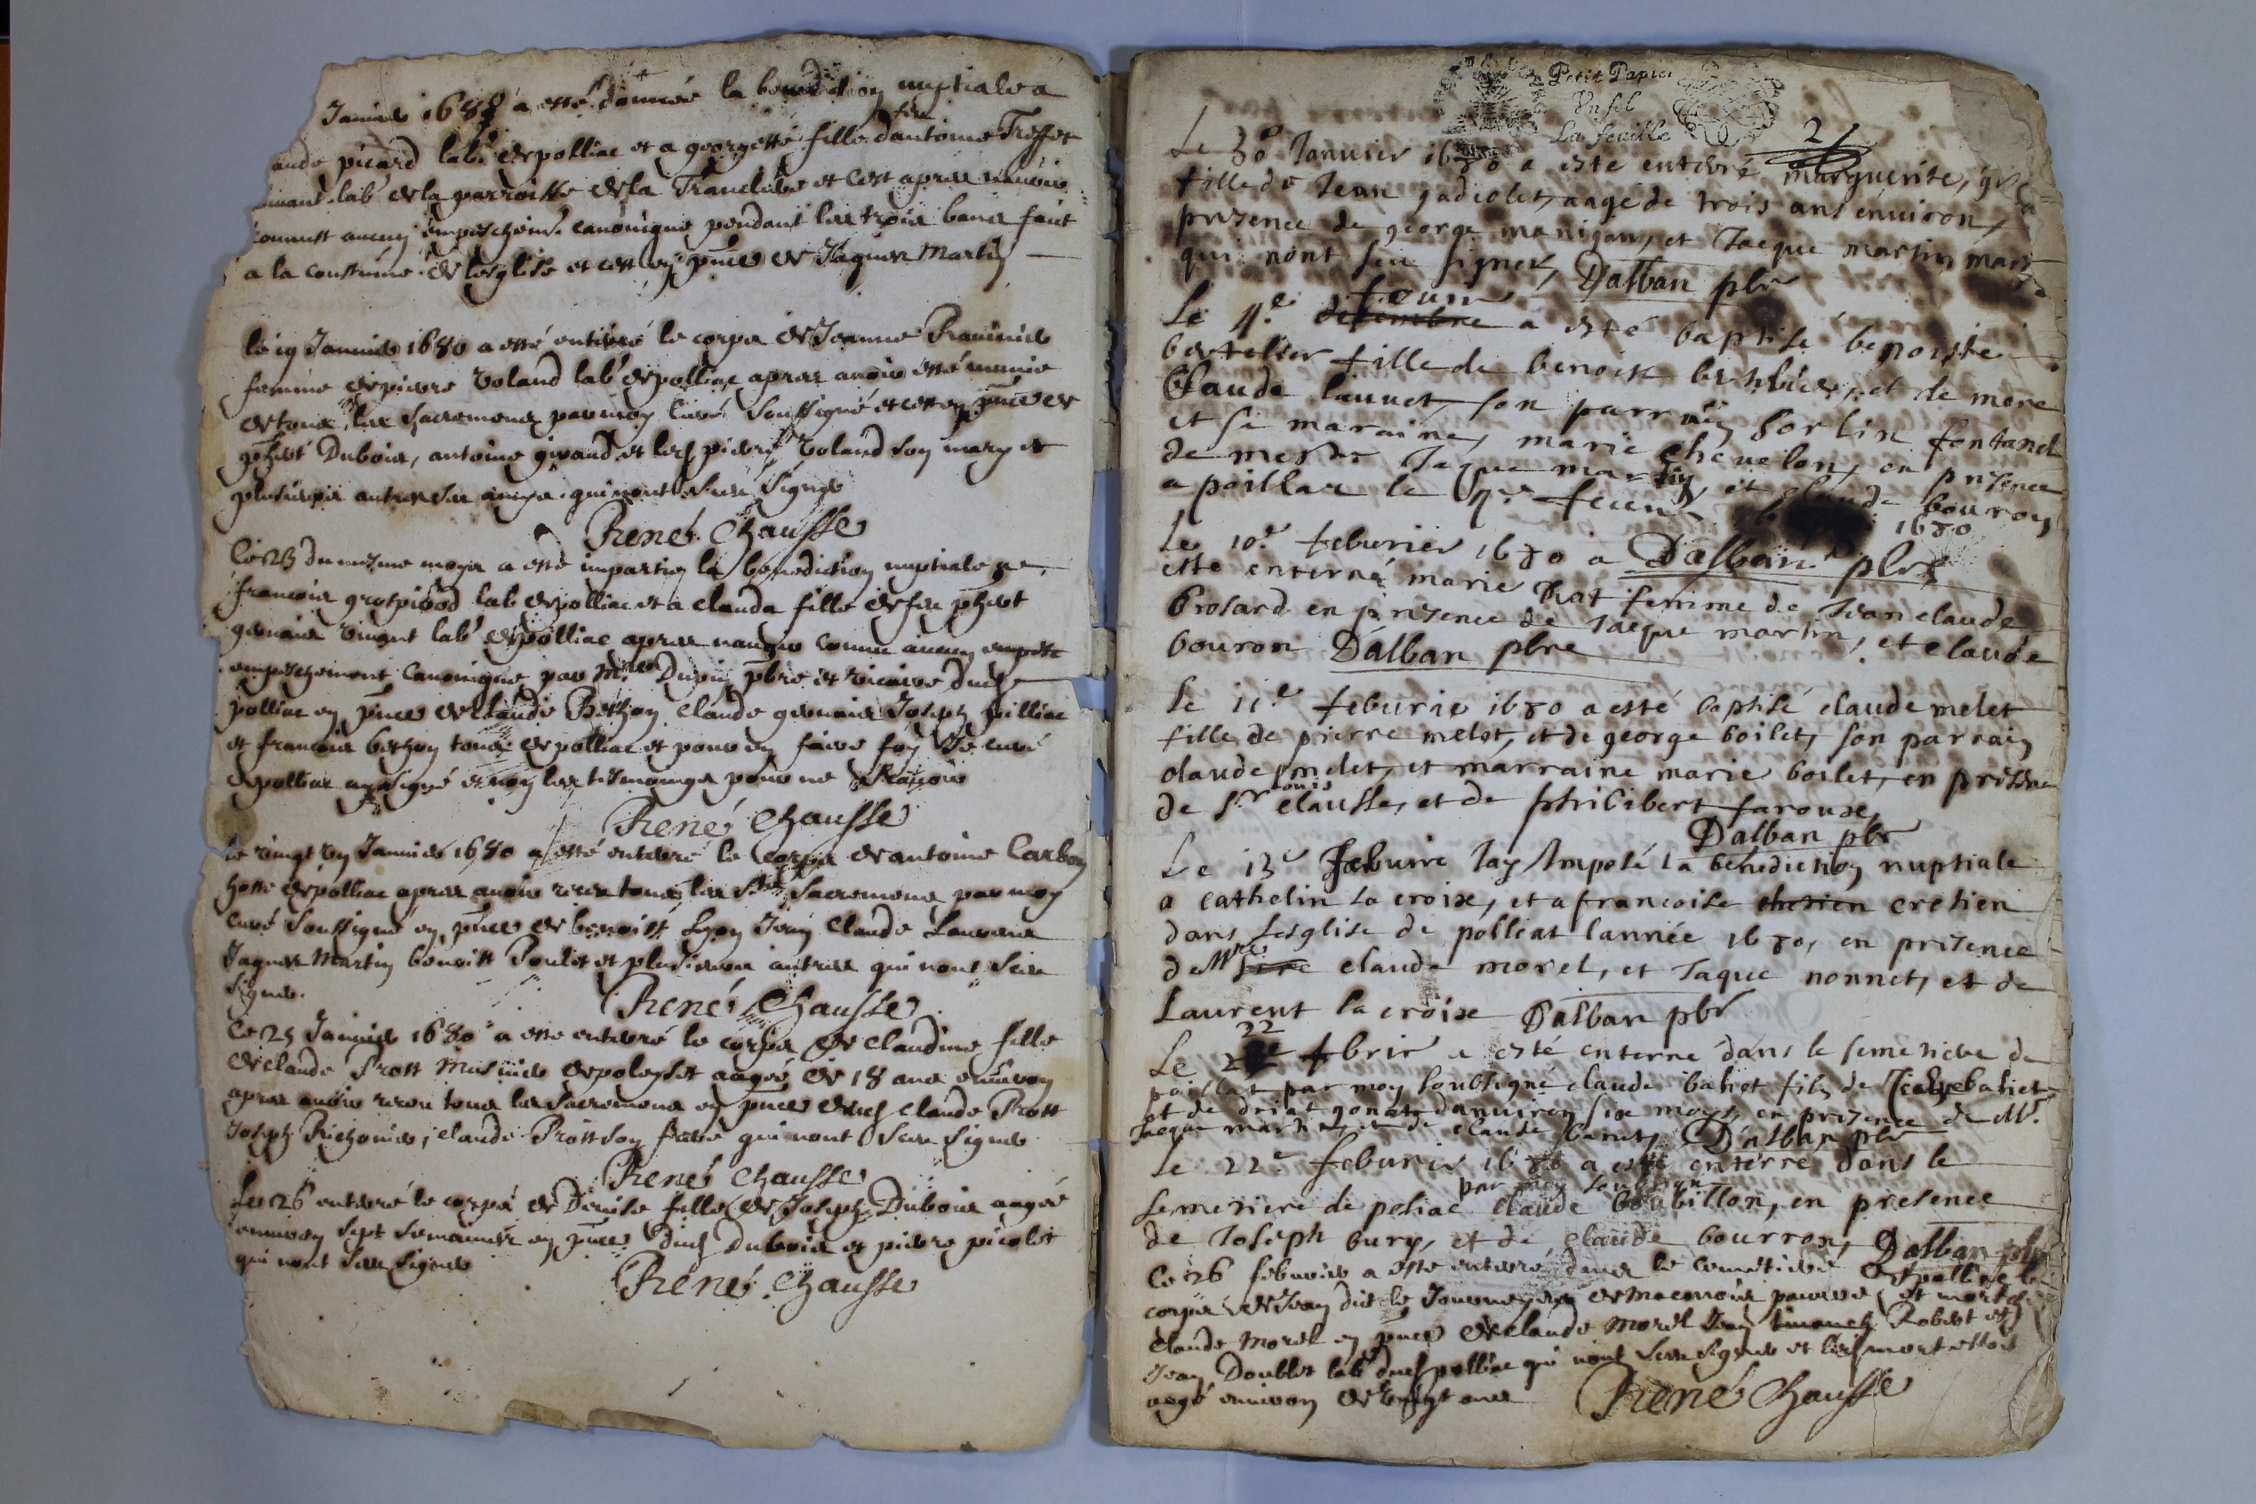 Januier 1680 a esté donnée la benediction nuptiale a
picard lab.r de polliac et a georgette fille dantoine Treffet
viuant lab.r de la parroisse de la Tranclire et cest apres nauoir
connust aucun empeschem.t canonique pendant les trois bans faict
a la constume de leglise et cest en p̃nce de Jaques Martin
le 19 Januier 1680 a esté enterré le corps de Jeanne
femme de pierre Voland lab.r de polliac apres auoir esté munie
de tous les sacremens par moy curé soussigné et cest en p̃nce de
Dubois, antoine giraud et led pierre Voland son mary et
plusieurs autres ses amys qui nont sceu signer
René Chausse
Le 23 du mesme moys a esté impartie la benediction nuptiale a
francois grospiod lab de polliac et a clauda fille de feu phibert
geruais viuant lab.r de polliac apres nauoir connu aucun
empeschement canonique par M.re Dupin pbre et vicaire dud
polliac en p̃nce de claude Bethon claude geruais Joseph pilliac
et francois bethon tous de polliac et pour en faire foy le curé
de polliac a signé et non les tesmoings pour ne scauoir
René Chausse
Le vingt un Januier 1680 a esté enterré le corps de antoine Carbon
hoste de polliac apres auoir receu tous les Sts Sacremens par moy
curé soussigné en p̃nce de benoist Lyon Jean Claude Laurans
Jaques Martin benoist Poulet et plusieurs autres qui nont sceu
signer.
René Chausse
Le 25 Januier 1680 a esté enterré le corps de claudine fille
de claude Prost Musnier de poleysat aagée de 18 ans enuiron
apres auoir receu tous les sacremens en p̃nce dud claude Prost
Joseph Richonier, claude Prost son frere qui nont sceu signer
René Chausse
Le 26 enterré le corps de Denise fille de Joseph Dubois aagée
enuiron sept semaines en p̃nce dud Dubois et pierre picolet
qui nont sceu signer
René Chausse
Petit Papier
Un sol
La feuille
2
Le 30 Januier 1680 a esté enterré marguerite,
fille de Jean gadiolet, aagé de trois ans enuiron,
presence de george manigan, et Jacque martin
qui nont seu signer, Dalban pbr
Le 4.e decembre feurr a esté baptisé benoiste
bertelier fille de benoist bertelier, et de more
Claude lauuet, son parrain Sorlin fontanel
et sa maraine, marie cheuelon, en presence
de mestre Jaque martin, et claude bouron
a poillac le 4.e feurr 1680
Dalban pbr
Le 10.e feburier 1680 a
esté enterré marie Prat femme de Jean claude
brosard en presence de Jacque martin, et claude
bouron Dalban pbre
Le 11.e feburie 1680 a esté baptisé claude melet
fille de pierre melet, et de george boilet, son parrain
claude melet, et marraine marie boilet, en presence
de S.r clausse, et de philibert farouse,
Dalban pbr
Le 13.e feburie Jay Imposé la benediction nuptiale
a cathelin la croix, et a francoise cherien cretien
dans lesglise de polliat lannée 1680, en presence
de M.re claude morel, et Jaque nonnet, et de
Laurent la croix Dalban pbr
Le 22 febrir a esté enterré dans le semetiere de
poillat par moy soubsigné claude batiet fils de batiet
et de driat gonat, danuiron six moys en presence de M.r
Jacque martin, et de claude Dalban pbr
Le 22.e feburie 1680 a esté enterré dans le
par moy soubsign
semetiere de poliac claude boubillon, en presence
de Joseph bury, et de claude bourron, Dalban pbr
Le 26 febuier a esté enterré dans le cemetiere de polliac le
corps de Jean dict le de pauure et mort
claude Morel en p̃nce de claude morel Jean Robert et
Jean Doublet lab.r dud polliac qui nont sceu signer et led mort estoit
aagé enuiron de vingt ans
René Chausse